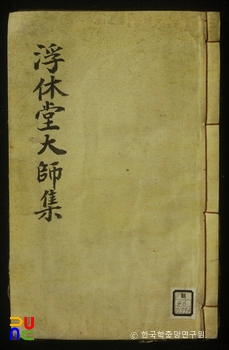 浮休堂大師集
© 한국학중앙연구원